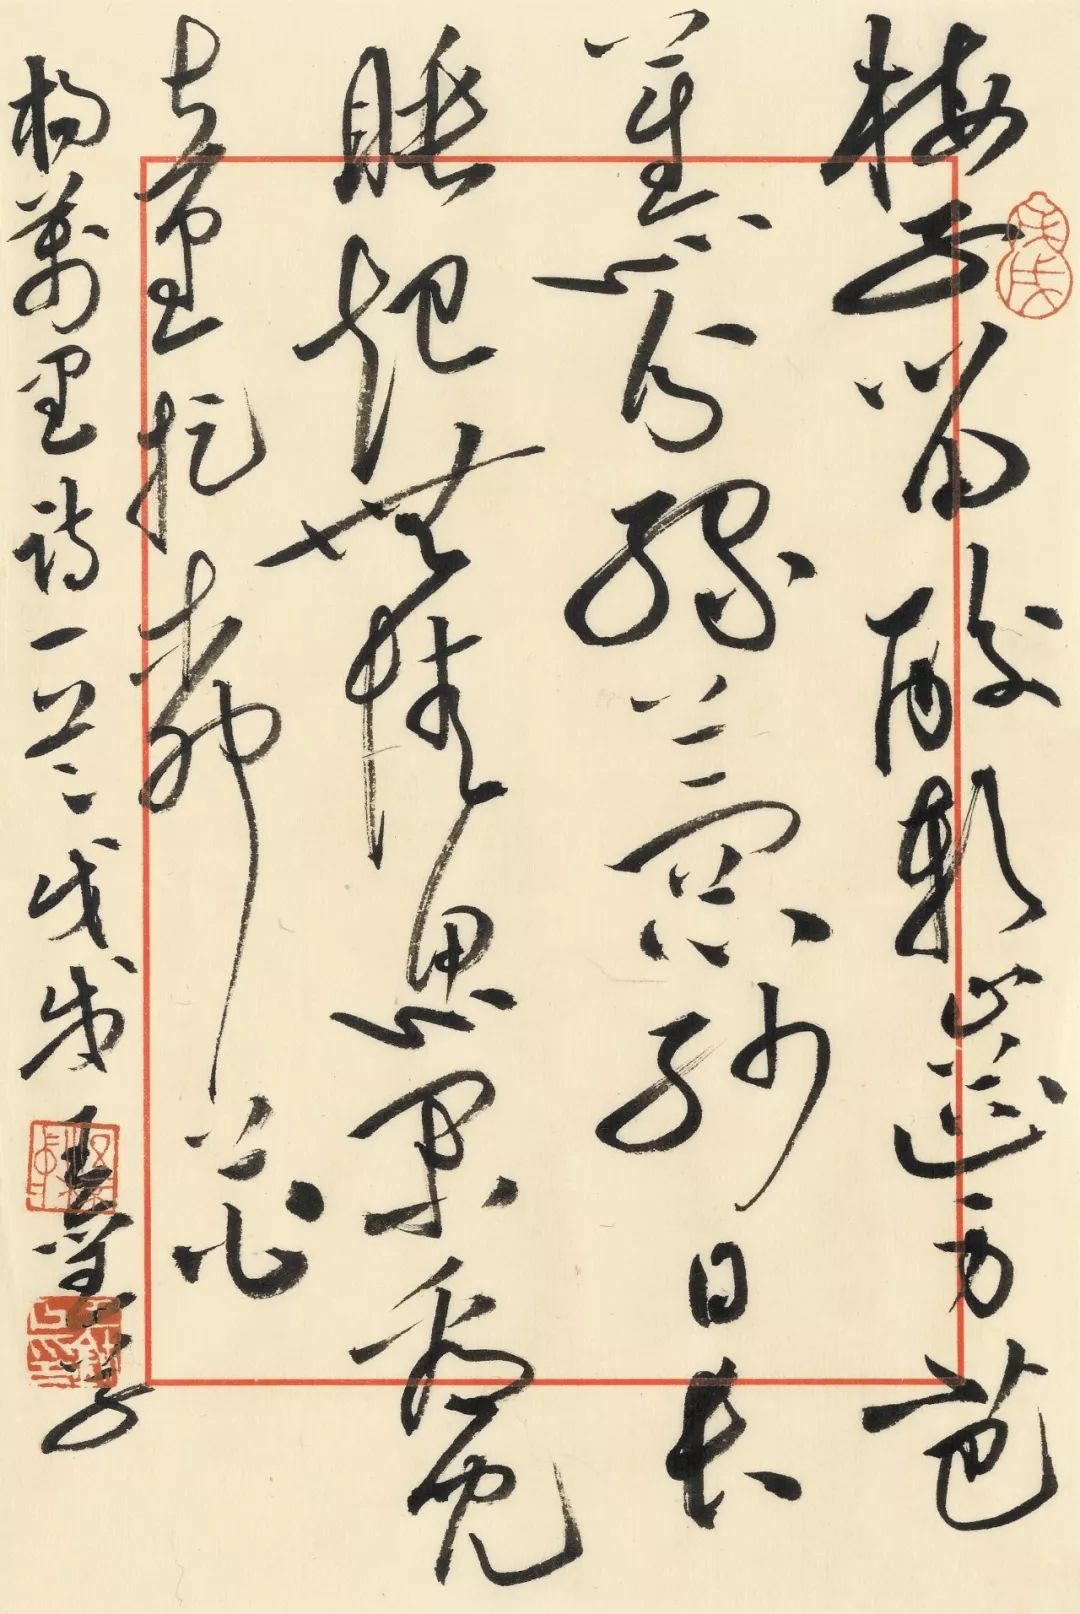 梅子留酸軟齒牙芭
蕉分綠與窗紗日長
睡起無情思閒看兒
童捉柳花
楊萬里詩一首
戊戌